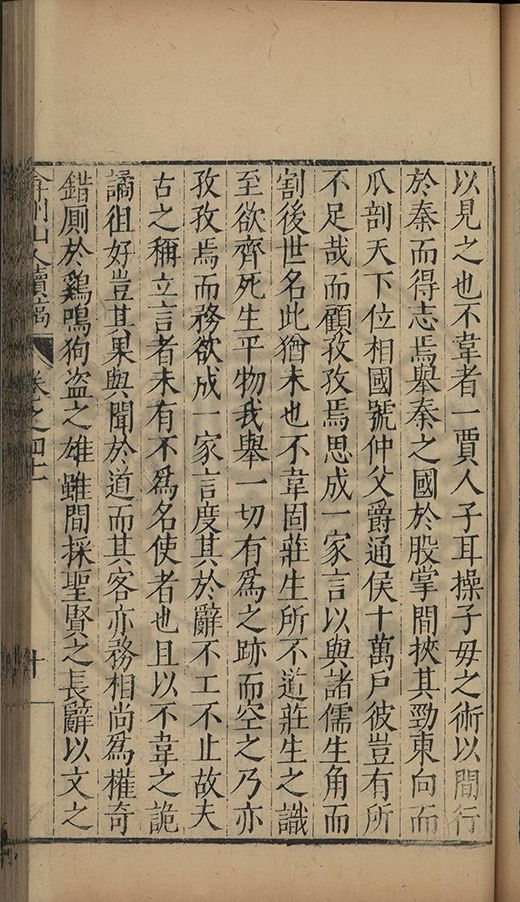 以見之也不韋者一賈人子耳操子毋之術以間行
於秦而得志焉舉秦之國於股掌間挾其勁東向而
瓜剖天下位相國號仲父爵通侯十萬戶彼豈有所
不足哉而顧孜孜焉思成一家言以與諸儒生角而
割後世名此猶未也不韋固莊生所不道莊生之識
至欲齊死生平物我舉一切有爲之跡而空之乃亦
孜孜焉而務欲成一家言度其於辭不工不止故夫
古之稱立言者未有不爲名使者也且以不韋之詭
譎徂好豈其果與聞於道而其客亦務相尚爲權奇
錯厠於鷄鳴狗盜之雄雖間採聖賢之長辭以文之
弇州山人續稿 卷之四十 十